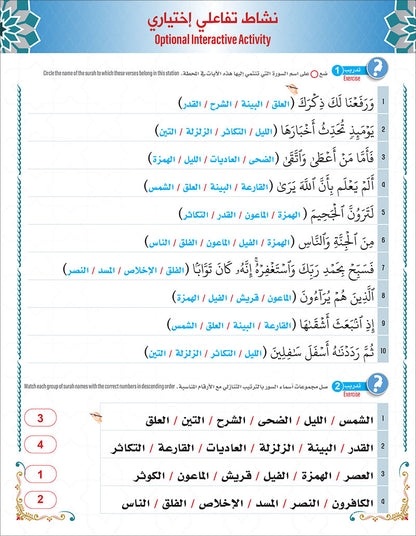 نشاط تفاعلي إختياري
Optional Interactive Activity
تدريب 1 ضع ○ على اسم السورة التي تنتمي إليها هذه الآيات في المحطة.
Exercise Circle the name of the surah to which these verses belong in this station.
1 وَرَفَعْنَا لَكَ ذِكْرَكَ (العلق / البينة / الشرح / القدر)
2 يَوْمَئِذٍ تُحَدِّثُ أَخْبَارَهَا (الليل / التكاثر / الزلزلة / التين)
3 فَأَمَّا مَنْ أَعْطَىٰ وَاتَّقَىٰ (الضحى / العاديات / الليل / الهمزة)
4 أَلَمْ يَعْلَم بِأَنَّ اللَّهَ يَرَىٰ (القارعة / البينة / العلق / الشمس)
5 لَتَرَوُنَّ الْجَحِيمَ (الهمزة / الماعون / القدر / التكاثر)
6 مِنَ الْجِنَّةِ وَالنَّاسِ (الهمزة / الفيل / الماعون / الفلق / الناس)
7 فَسَبِّحْ بِحَمْدِ رَبِّكَ وَاسْتَغْفِرْهُ ۚ إِنَّهُ كَانَ تَوَّابًا (الفلق / الإخلاص / المسد / النصر)
8 الَّذِينَ هُمْ يُرَاءُونَ (الماعون / قريش / الفيل / الهمزة)
9 إِذِ انۢبَعَثَ أَشْقَاهَا (القارعة / البينة / العلق / الشمس)
10 ثُمَّ رَدَدْنَاهُ أَسْفَلَ سَافِلِينَ (الليل / التكاثر / الزلزلة / التين)
تدريب 2 صل مجموعات أسماء السور بالترتيب التنازلي مع الأرقام المناسبة.
Exercise Match each group of surah names with the correct numbers in descending order.
1 الشمس / الليل / الضحى / الشرح / التين / العلق 3
2 القدر / البينة / الزلزلة / العاديات / القارعة / التكاثر 4
3 العصر / الهمزة / الفيل / قريش / الماعون / الكوثر 1
4 الكافرون / النصر / المسد / الإخلاص / الفلق / الناس 2